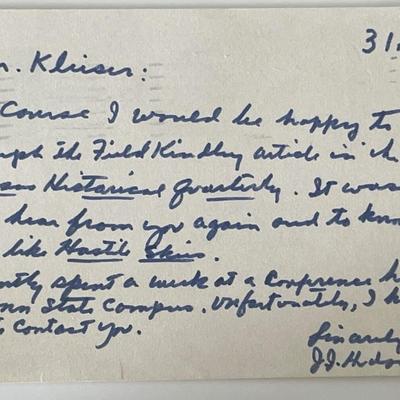 31
r. Kleiser:
Course I would be happy to
graph the Field Kindley article in the
sas Historical Quarterly. It was
hear from you again and to know
like Hostile Skies.
ntly spent a week at a Conference h
nn State Campus. Unfortunately, I
to contact you.
Sincerely
J.J. Hudson